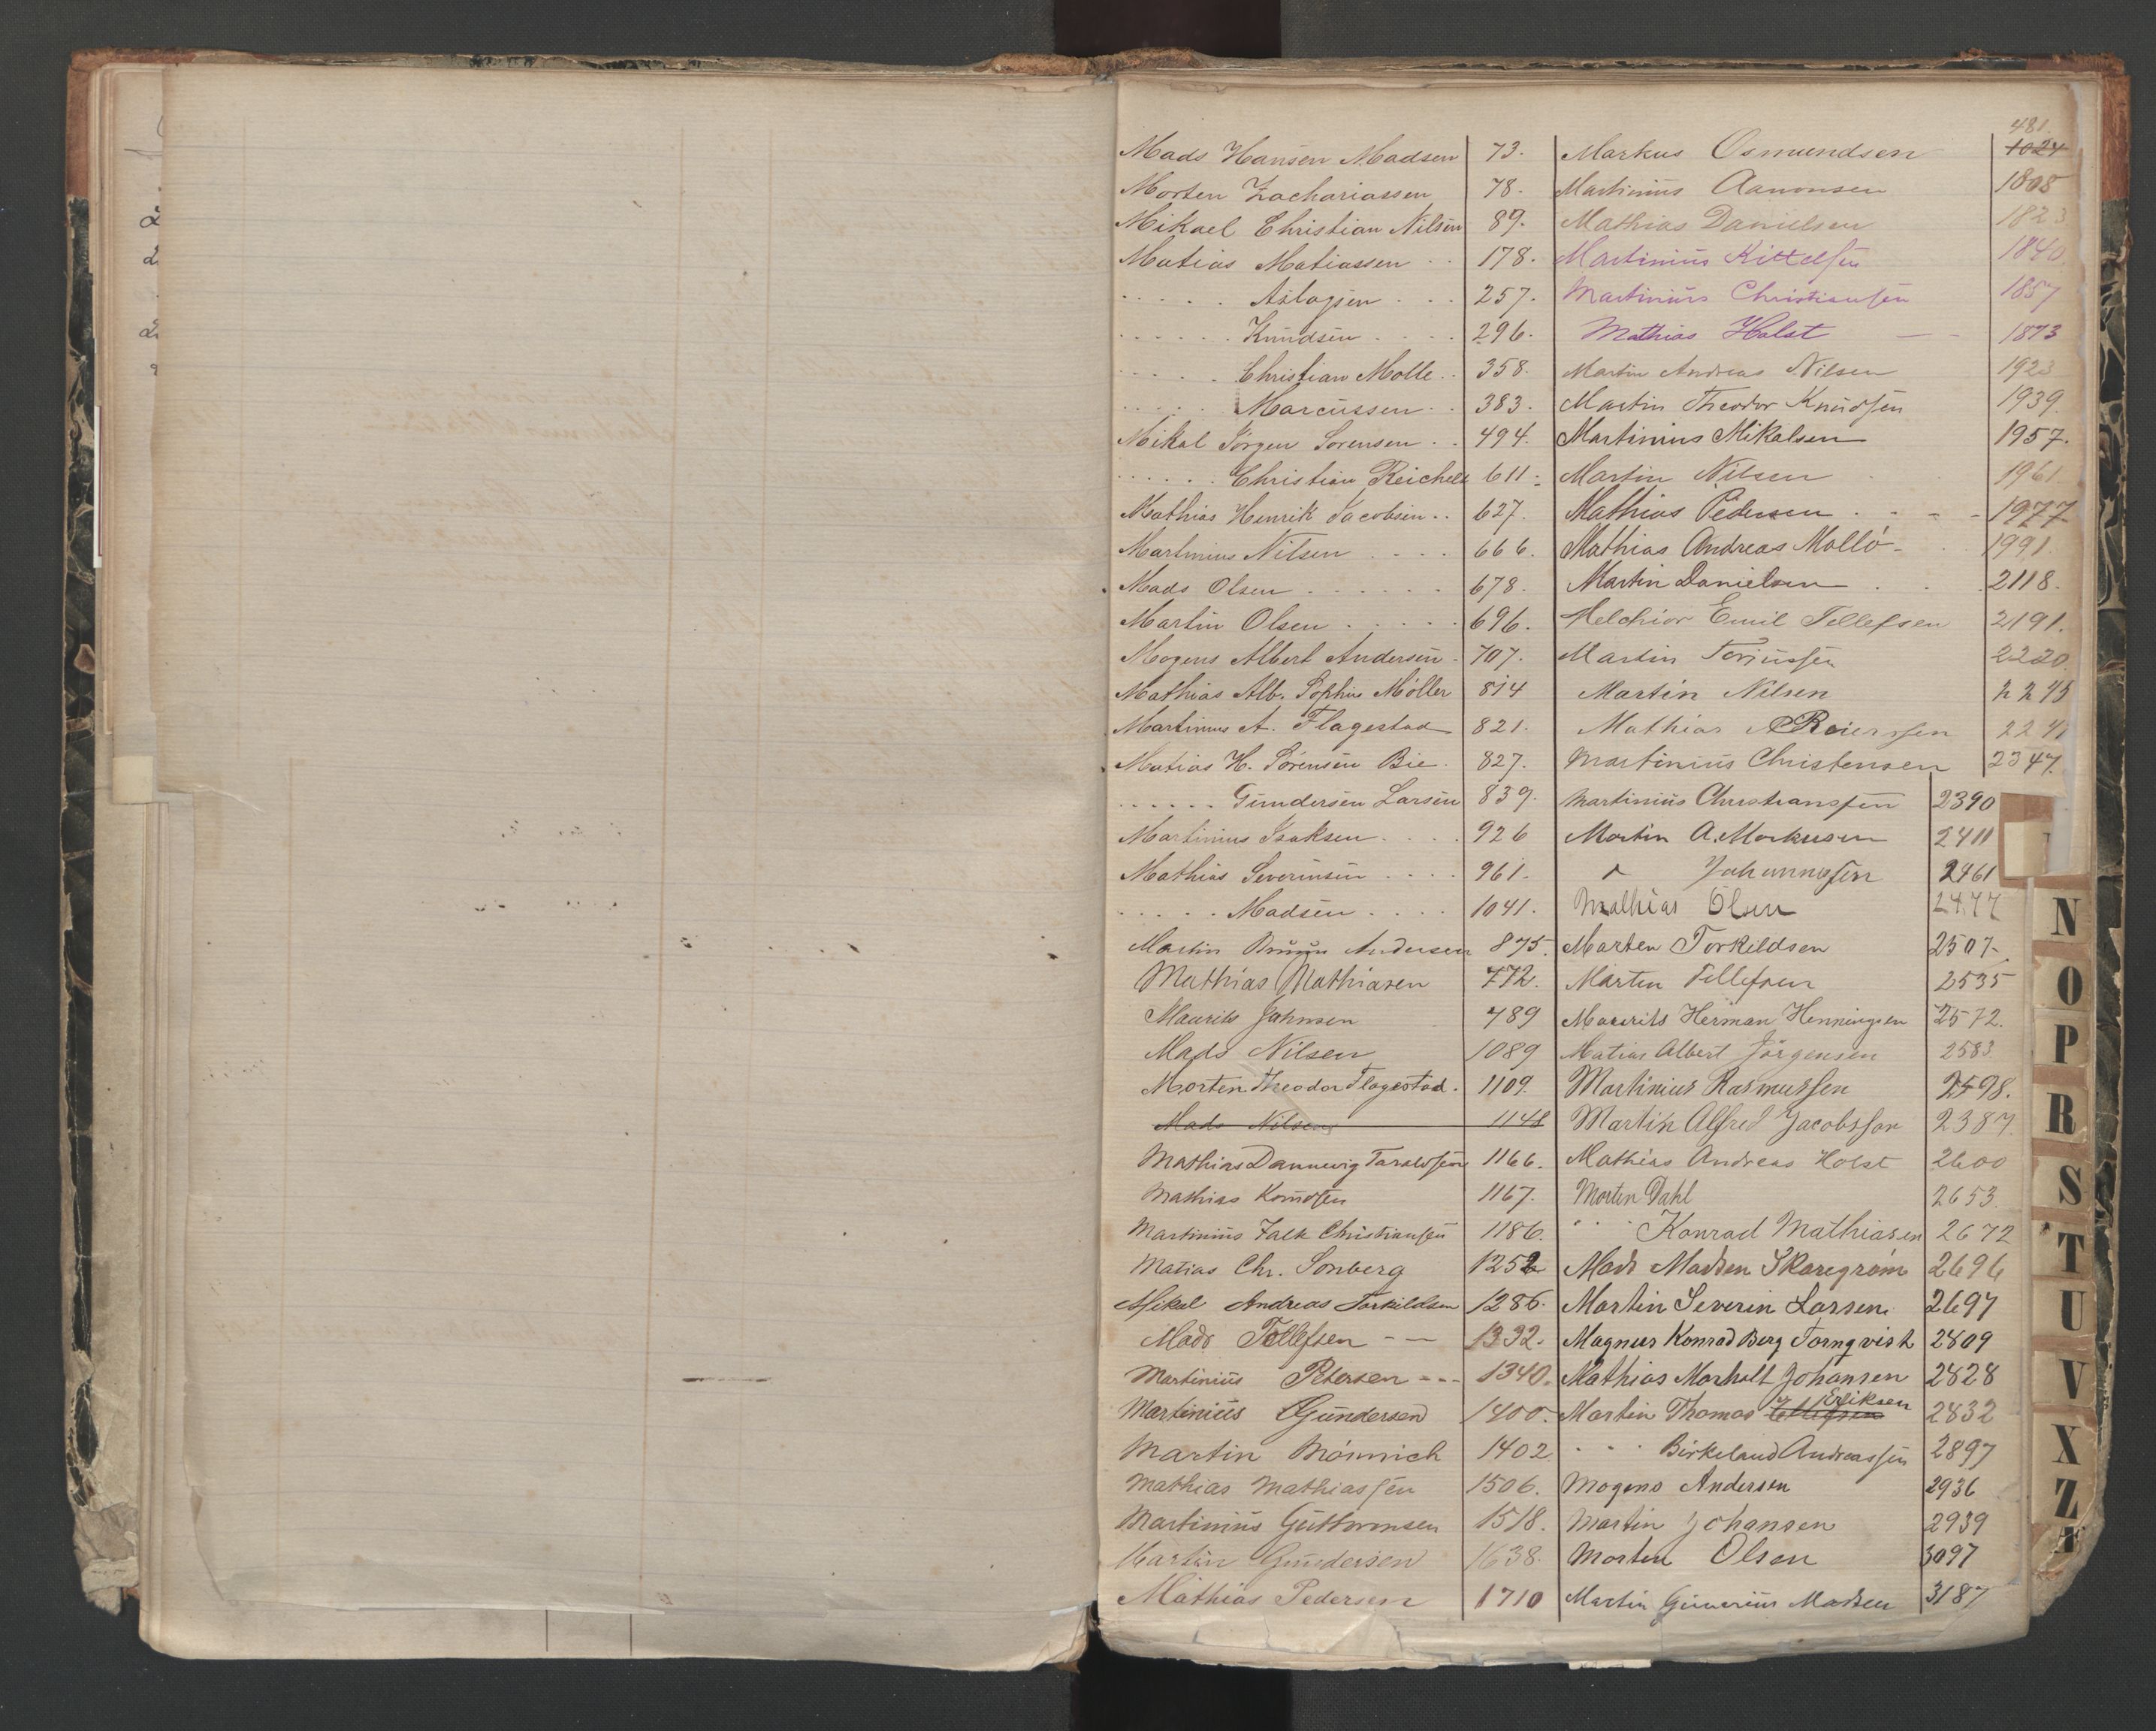 Mads Hansen Madsen 73.
Morten Zachariassen 78.
Mikael Christian Nilsen 89.
Matias Matiassen . . 178.
. . . . . Aslagsen . . . 257.
. . . . . . Knudsen . . . . 296.
. . . . . Christian Molle . . 358.
. . . . . Marcussen . . 383.
Mikal Jörgen Sorensen . . 494.
. . . . . . Christian Reichelt 611.
Mathias Henrik Jacobsen . . 627.
Martinius Nilsen . . . . 666.
Mads Olsen . . . . . . 678.
Martin Olsen . . . . . 696.
Mogens Albert Andersen . 707.
Mathias Alb. Sophus Möller 814
Martinius A. Flagestad 821.
Matias H. Sörensen Bie . 827.
. . . . . . Gundersen Larsen 839.
Martinius Isaksen . . . . 926
Mathias Severinsen . . . . 961.
. . . . . Madsen . . . . 1041.
Martin Bruun Andersen 875.
Mathias Mathiasen 772.
Maurits Johnsen 789
Mads Nilsen 1089
Morten Theodor Flagestad . 1109.
Mads Nilsen 1148
Mathias Dannevig Taraldsen 1166.
Mathias Knudsen 1167.
Martinius Falk Christiansen 1186.
Matias Chr. Sonberg 1252
Mikal Andreas Torkildsen 1286.
Mads Tellefsen - - 1332.
Martinius Petersen - - - 1340.
Martinius Gundersen 1400.
Martin Mönnich 1402
Mathias Mathiassen 1506.
Martinius Guttormsen 1518.
Martin Gundersen 1638.
Mathias Pedersen 1710
481.
Markus Osmundsen 1024
Martinius Aanonsen 1808
Mathias Danielsen 1823
Martinius Kittelsen 1840
Martinius Christiansen 1857
Mathias Holst 1873
Martin Andreas Nilsen 1923
Martin Theodor Knudsen 1939.
Martinius Mikalsen 1957.
Martin Nilsen 1961.
Mathias Pedersen . - - - 1977
Mathias Andreas Molló - 1991.
Martin Danielsen 2118.
Melchior Emil Tellefsen 2191.
Martin Terjussen 2220.
Martin Nilsen 2245
Mathias Reierssen 2241
Martinius Christensen 2347.
Martinius Christiansen 2390
Martin A. Markusen 2411
Johannessen 2461
Mathias Olsen 2477
Marten Torkildsen 2507.
Marten Tellefsen 2535
Maurits Herman Henningsen 2572.
Matias Albert Jörgensen 2583
Martinius Rasmussen 2598.
Martin Alfred Jacobssen 2387.
Mathias Andreas Holst 2600
Morten Dahl 2653
" " " Konrad Mathiasen 2672
Mads Madsen Skaregröm 2696
Martin Severin Larsen 2697
Magnus Konrad Berg Tornqvist 2809
Mathias Marholt Johansen 2828
Eriksen
Martin Thomas Tellefsen 2832
" " " Birkeland Andreassen 2897
Mogens Andersen 2936
Martin Johansen 2939
Morten Olsen 3097
Martin Gunerius Madsen 3187
N
O
P
R
S
T
U
V
X
Z
Æ